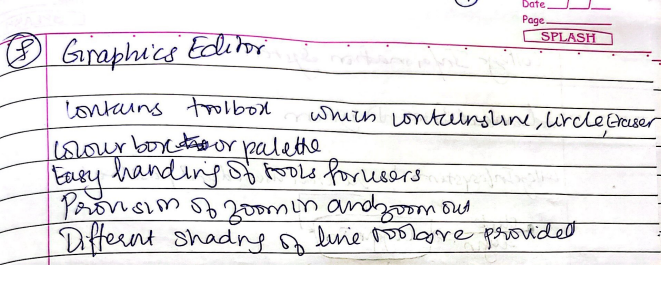 Date
Page
SPLASH
(8) Graphics Editor
Contains toolbox which contains line, circle, Eraser
Colour box or palette
Easy handing of tools for users
Provision of zoom in and zoom out
Different shadng of line tool are provided